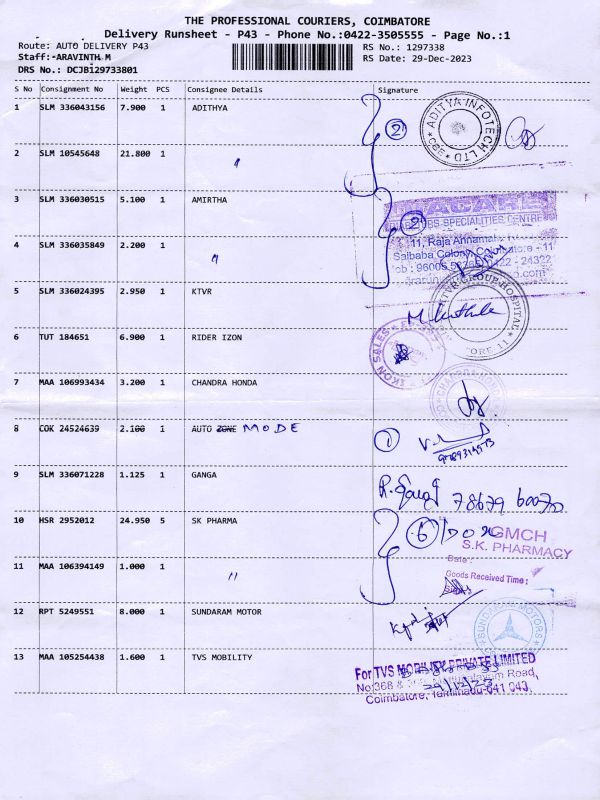 THE PROFESSIONAL COURIERS, COIMBATORE
Delivery Runsheet - P43 - Phone No.:0422-3505555 - Page No.:1
Route: AUTO DELIVERY P43
Staff: ARAVINTH M
DRS No.: DCJB129733801
RS No.: 1297338
RS Date: 29-Dec-2023
S No Consignment No Weight PCS Consignee Details Signature
1 SLM 336043156 7.900 1 ADITHYA
2
ADITYA INFOTECH LTD
2 SLM 10545648 21.800 1 "
3 SLM 336030515 5.100 1 AMIRTHA
2
SPECIALITIES CENTRE
4 SLM 336035849 2.200 1 "
11, Raja Annamalai
Saibaba Colony, Coimbatore - 11
5 SLM 336024395 2.950 1 KTVR
GROUP HOSPITAL
6 TUT 184651 6.900 1 RIDER IZON
SALES
7 MAA 106993434 3.200 1 CHANDRA HONDA
8 COK 24524639 2.100 1 AUTO ZONE MODE
1
9 SLM 336071228 1.125 1 GANGA
10 HSR 2952012 24.950 5 SK PHARMA
6
GMCH
S.K. PHARMACY
Date:
11 MAA 106394149 1.000 1 "
Goods Received Time:
12 RPT 5249551 8.000 1 SUNDARAM MOTOR
SUNDARAM MOTORS
13 MAA 105254438 1.600 1 TVS MOBILITY
For TVS MOBILITY PRIVATE LIMITED
No:368 & Road,
29/12/23
Coimbatore, Tamilnadu-641 043.